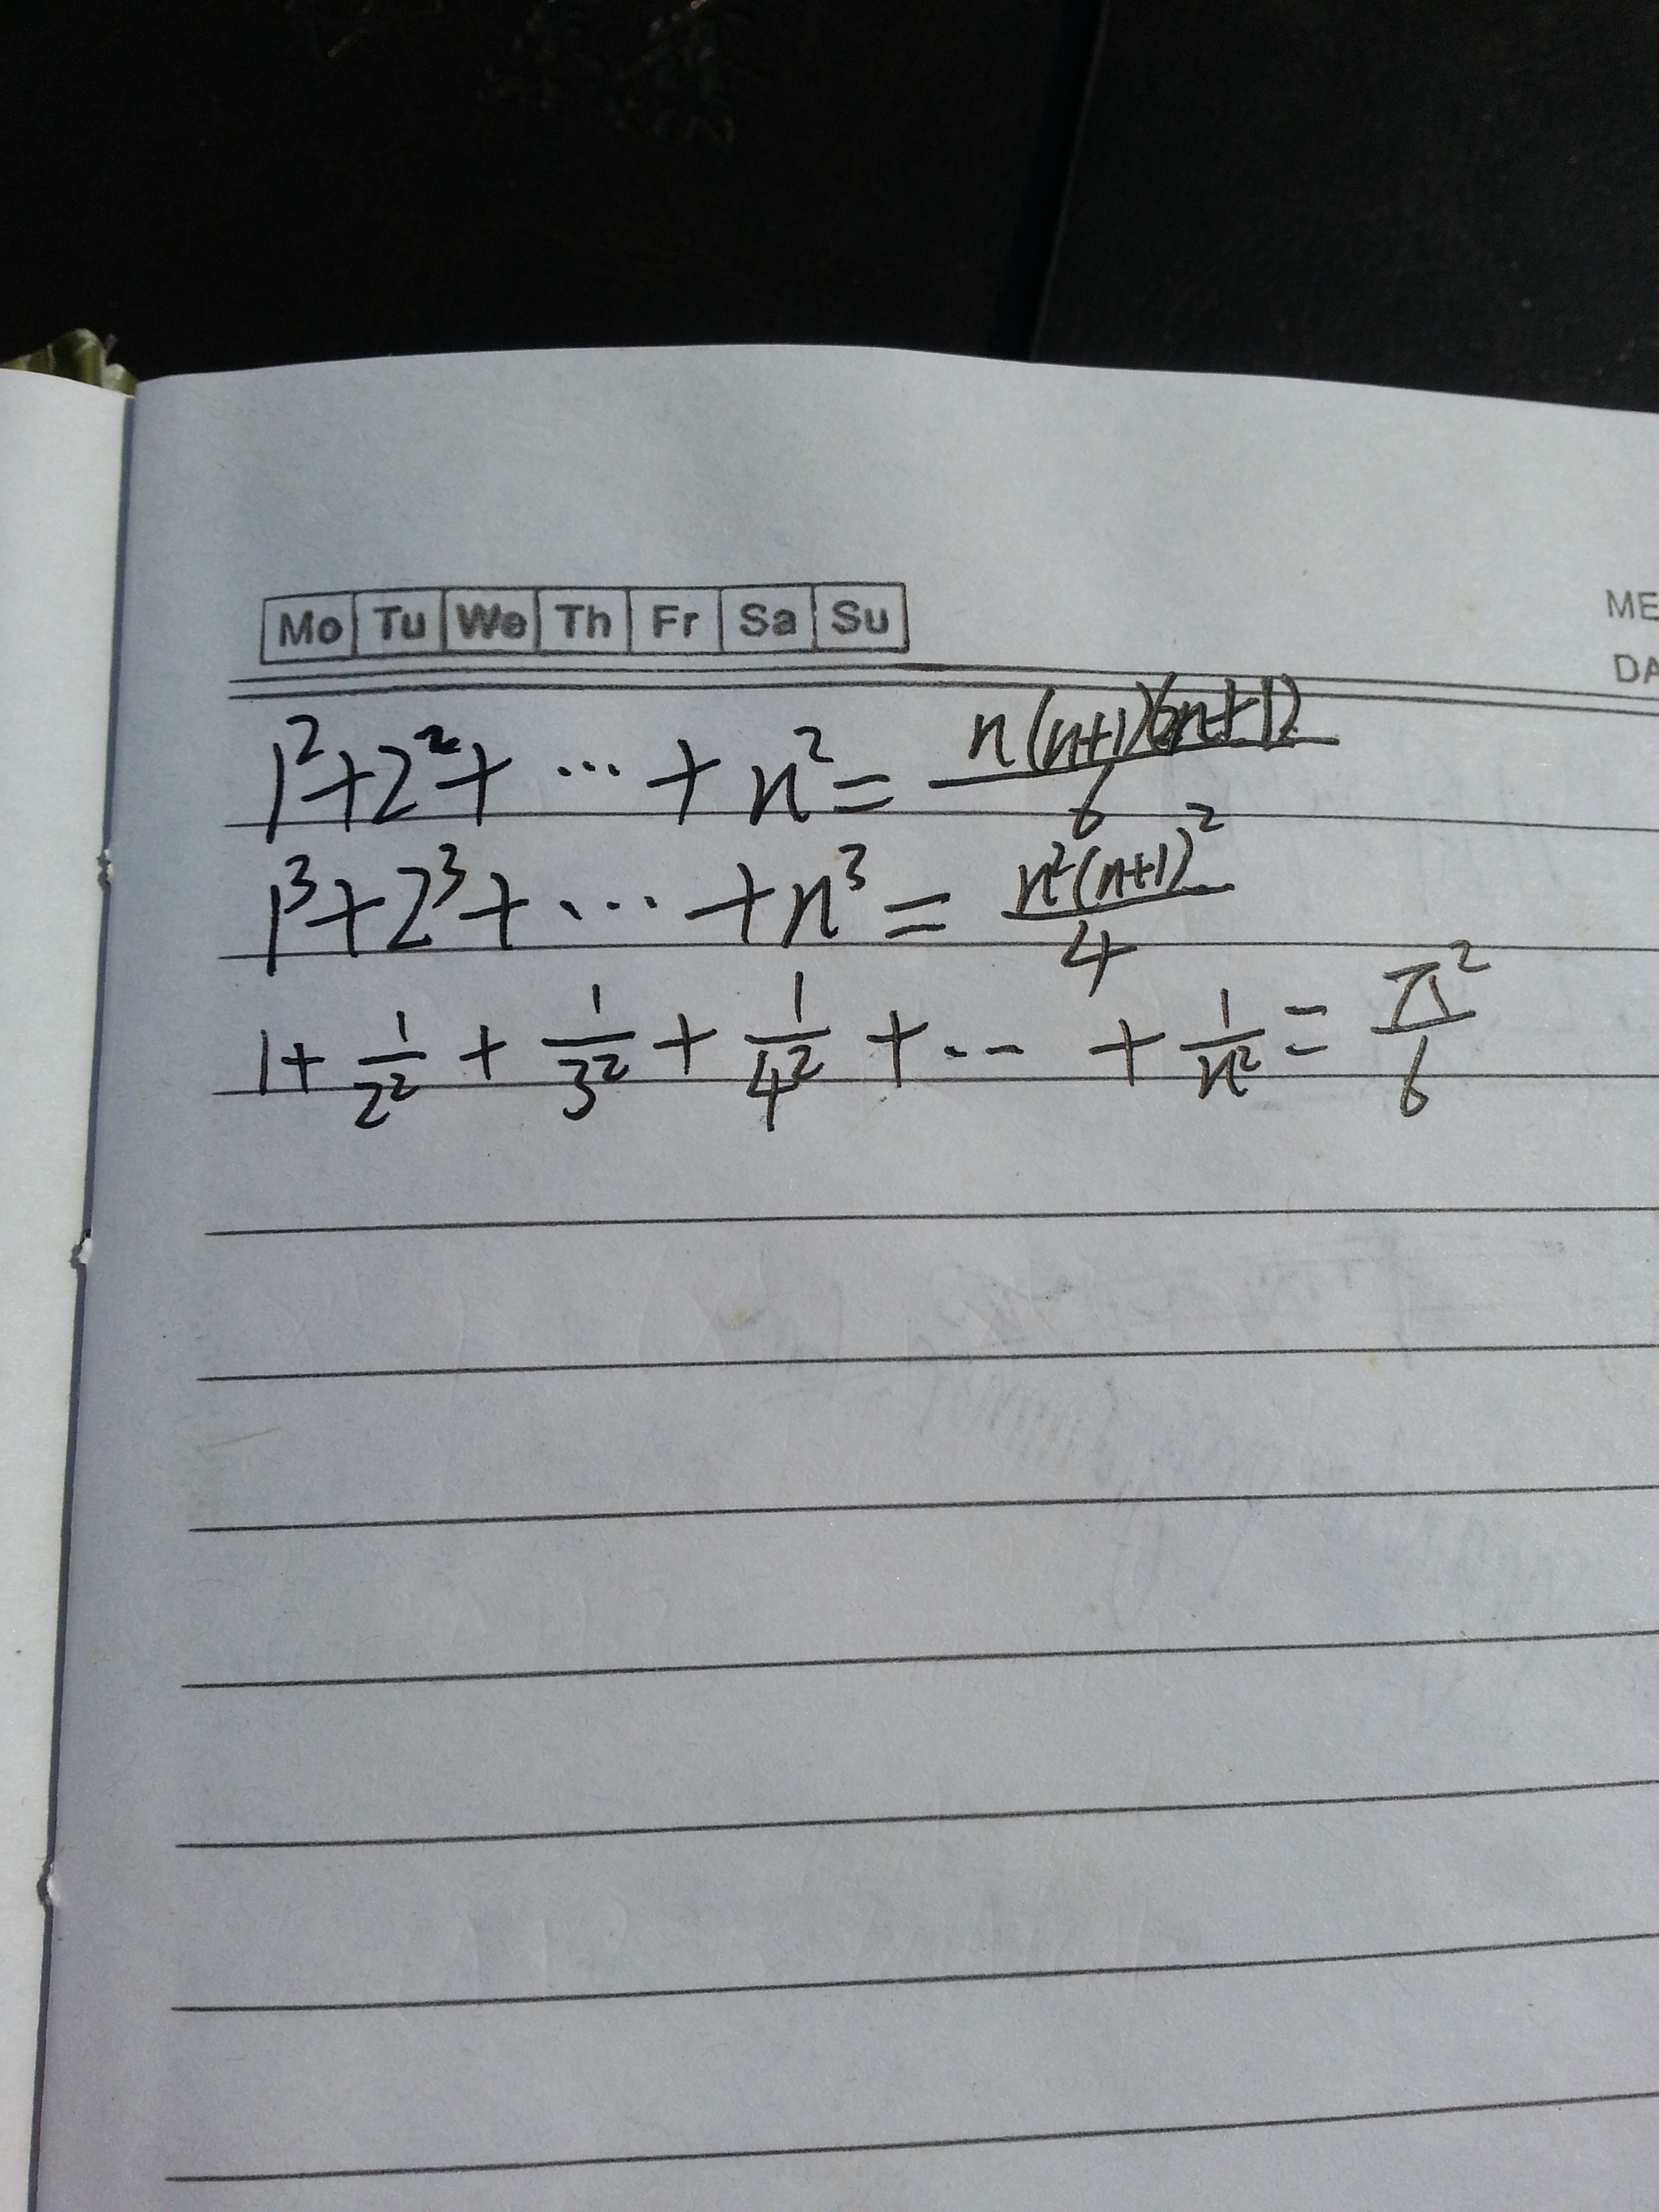 Mo Tu We Th Fr Sa Su
ME
DA
1²+2²+ ⋯ + n² = n(n+1)(2n+1)/6
1³+2³+ ⋯ +n³ = n²(n+1)²/4
1+ 1/2² + 1/3² + 1/4² + ⋯ + 1/n² = π²/6